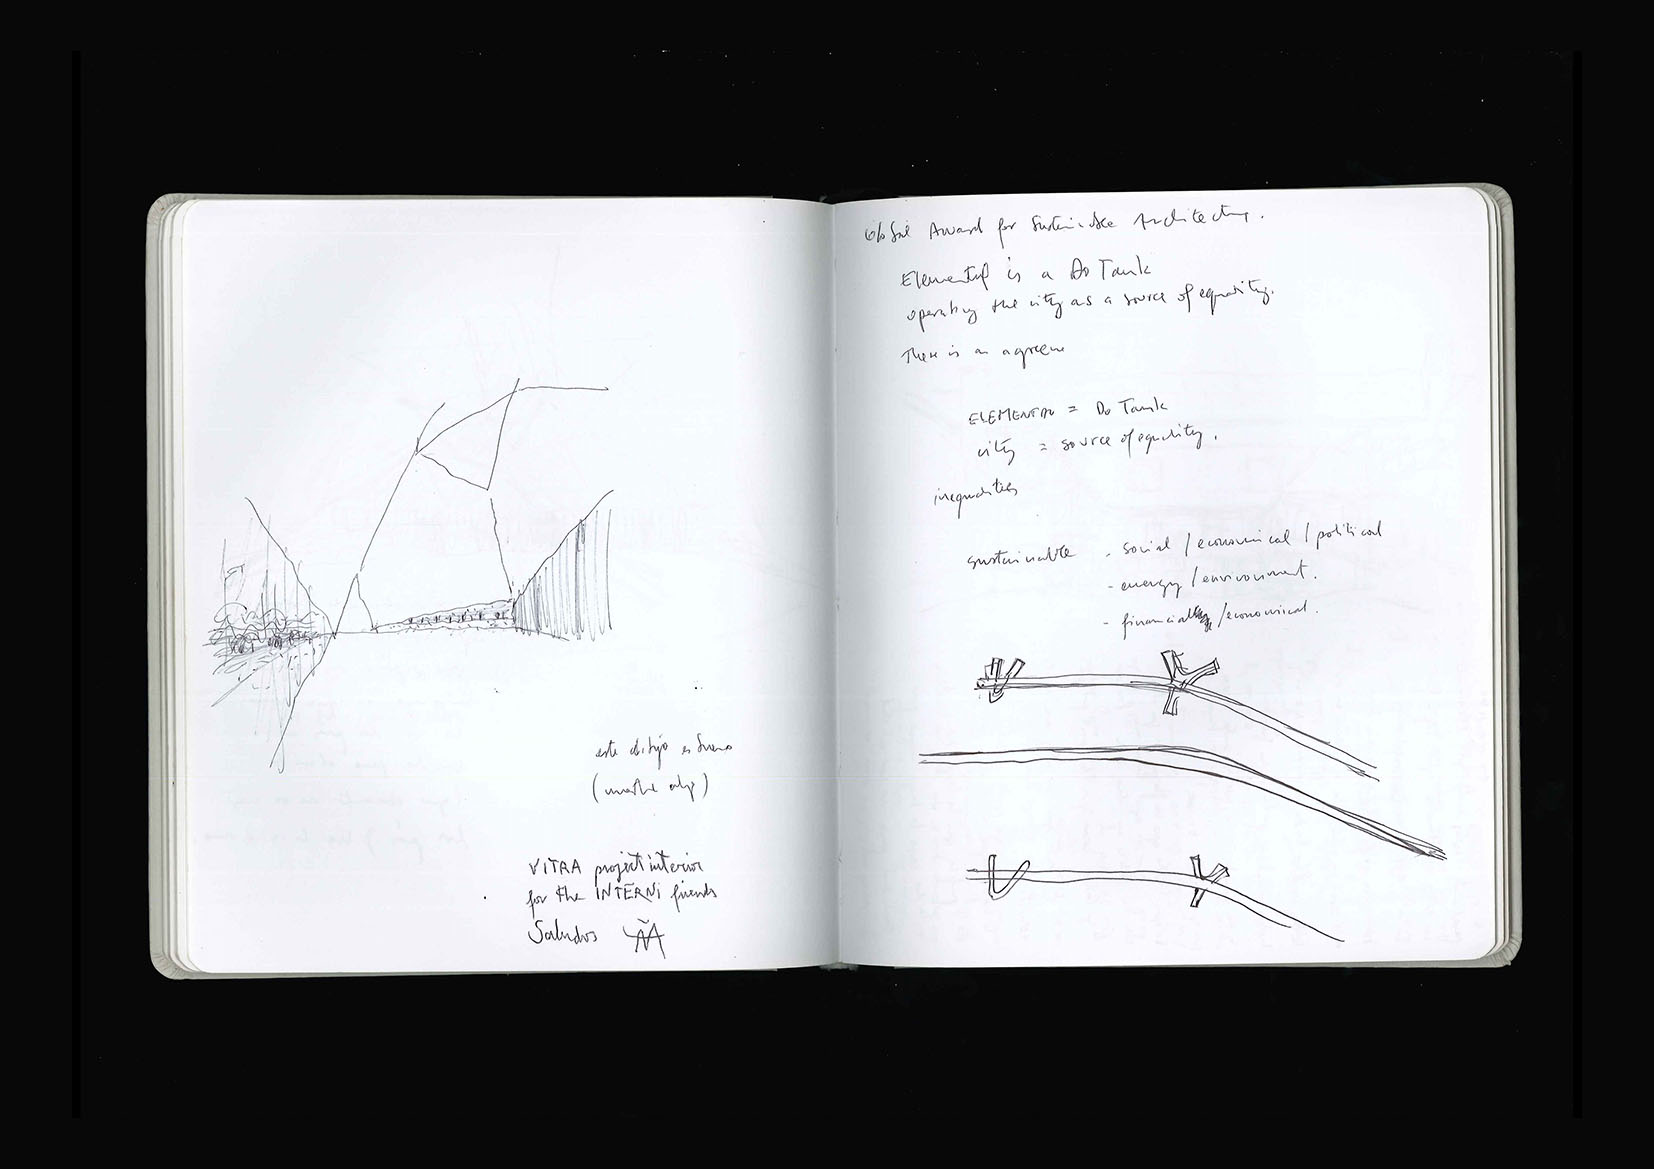 este dibujo es bueno
VITRA project interior
for the INTERNI friends
Saludos
Global Award for Sustainable Architecture.
Elemental is a Do Tank
operating the city as a source of equality.
There is an agreem
ELEMENTAL = Do Tank
city = source of equality.
inequalities
sustainable . social / economical / political
- energy / environment.
- financial / economical.